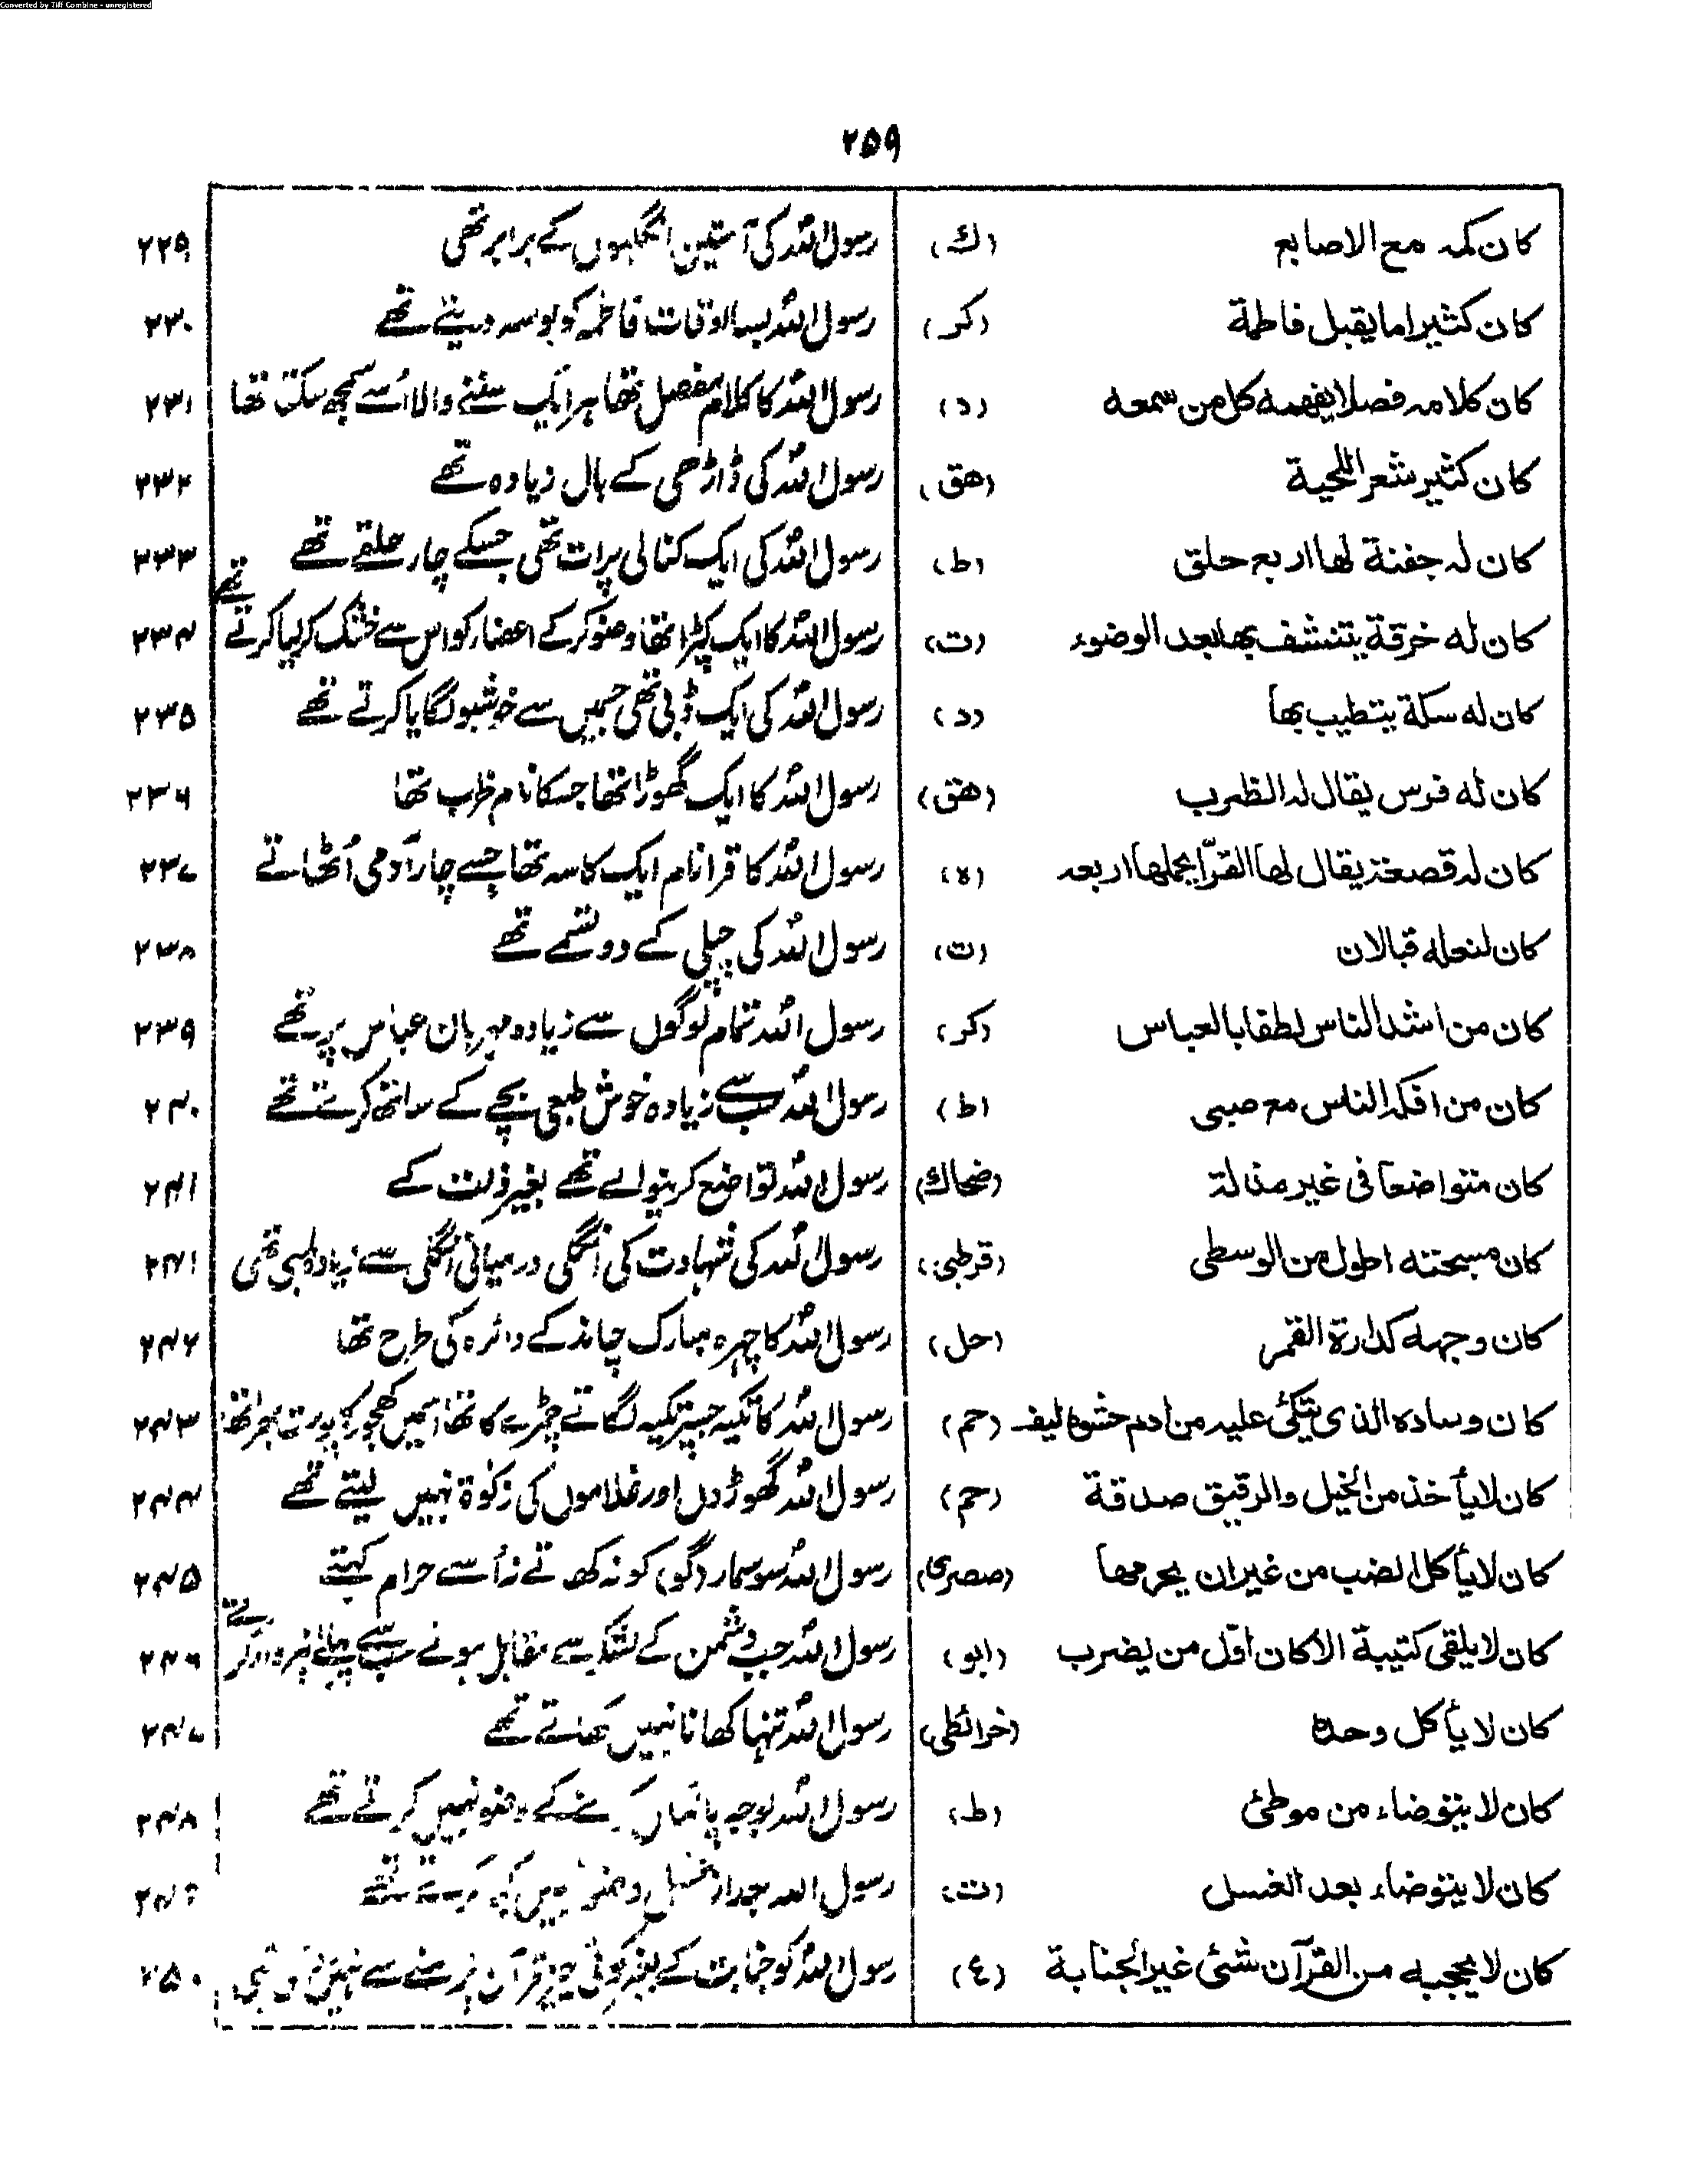 Converted by Tiff Combine - unregistered
۲۵۹
کان کمہ مع الاصابع (ك) رسول اللہ کی آستین انگلیوں کے برابر تھی ۲۲۹
کان کثیرا ما یقبل فاطمة (کر) رسول اللہ بسا اوقات فاطمہ کو بوسہ دیتے تھے ۲۳۰
کان کلامہ فصلا یفہمہ کل من سمعہ (د) رسول اللہ کا کلام مفصل تھا ہر ایک سننے والا اُسے سمجھ سکتا تھا ۲۳۱
کان کثیر شعر اللحیة (ھق) رسول اللہ کی ڈاڑھی کے بال زیادہ تھے ۲۳۲
کان لہ جفنة لھا اربع حلق (ط) رسول اللہ کی ایک کنالی پرات تھی جسکے چار حلقے تھے ۲۳۳
کان له خرقة یتنشف بھا بعد الوضوء (ت) رسول اللہ کا ایک کپڑا تھا وضو کر کے اعضار کو اس سے خشک کر لیا کرتے تھے ۲۳۴
کان له سکة یتطیب بھا (د) رسول اللہ کی ایک ڈبی تھی جسمیں سے خوشبو لگایا کرتے تھے ۲۳۵
کان له فرس یقال لہ الظرب (ھق) رسول اللہ کا ایک گھوڑا تھا جسکا نام ظرب تھا ۲۳۶
کان لہ قصعة یقال لھا القرّا یحملھا اربعہ (ہ) رسول اللہ کا قرا نام ایک کاسہ تھا جسے چار آدمی اُٹھاتے ۲۳۷
کان لنعله قبالان (ت) رسول اللہ کی چپلی کے دو تسمے تھے ۲۳۸
کان من اشد الناس لطفا بالعباس (کر) رسول اللہ تمام لوگوں سے زیادہ مہربان عباس پر تھے ۲۳۹
کان من افکہ الناس مع صبی (ط) رسول اللہ سب سے زیادہ خوش طبعی بچے کے ساتھ کرتے تھے ۲۴۰
کان متواضعا فی غیر مذلة (ضحاك) رسول اللہ تواضع کرنیوالے تھے بغیر ذلت کے ۲۴۱
کان مسبحته اطول من الوسطی (قرطبی) رسول اللہ کی شہادت کی انگلی درمیانی انگلی سے زیادہ لمبی تھی ۲۴۱
کان وجہه کدارة القمر (حل) رسول اللہ کا چہرہ مبارک چاند کے دائرہ کی طرح تھا ۲۴۲
کان وسادہ الذی یتکئ علیہ من ادم حشوہ لیف (حم) رسول اللہ کا تکیہ جسپر تکیہ لگاتے چمڑے کا تھا اسمیں کھجور کا پوست بھرا تھا ۲۴۳
کان لا یأخذ من الخیل والرقیق صدقة (حم) رسول اللہ گھوڑوں اور غلاموں کی زکوٰۃ نہیں لیتے تھے ۲۴۴
کان لا یأکل الضب من غیر ان یحرمھا (صصری) رسول اللہ سوسمار (گو) کو نہ کھاتے نہ اُسے حرام کہتے ۲۴۵
کان لا یلقی کتیبة الا کان اوّل من یضرب (ابو) رسول اللہ جب دشمن کے لشکر سے مقابل ہوتے سب سے پہلے خود وار کرتے ۲۴۶
کان لا یأکل وحدہ (خرائطی) رسول اللہ تنہا کھانا نہیں کھاتے تھے ۲۴۷
کان لا یتوضاء من موطئ (ط) رسول اللہ بوجہ پائمال کے وضو نہیں کرتے تھے ۲۴۸
کان لا یتوضاء بعد الغسل (ت) رسول اللہ بعد از غسل وضو نہیں کرتے تھے
کان لا یحجبه من القرآن شئی غیر الجنابة (ع) رسول اللہ کو جنابت کے بغیر کوئی چیز قرآن پڑھنے سے نہیں ۲۵۰